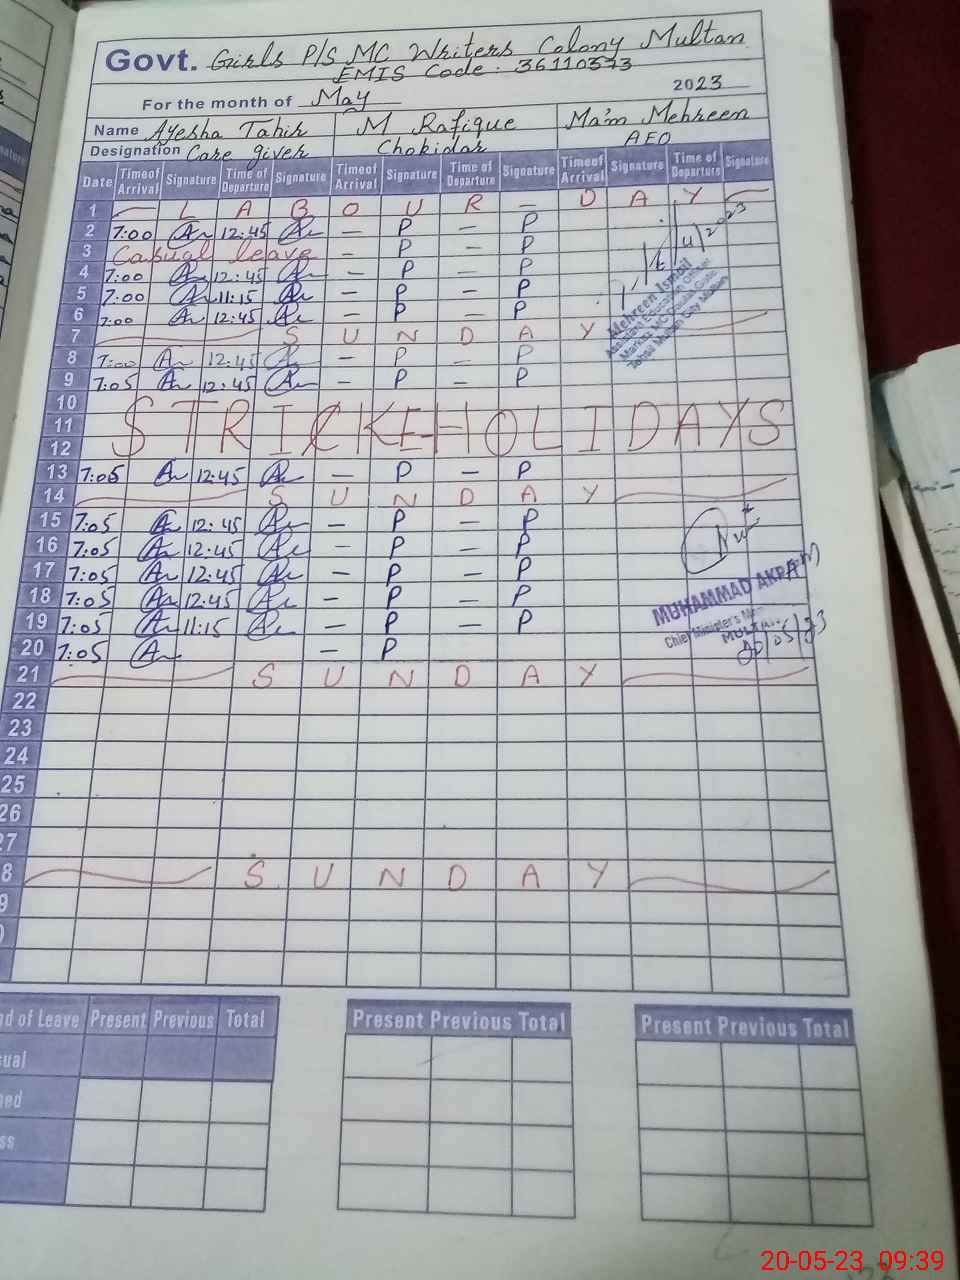 Govt. Girls P/S MC Writers Colony Multan
EMIS Code : 36110373
For the month of May 2023
Name Ayesha Tahir M Rafique Ma'm Mehreen
Designation Care giver Chokidar AEO
Date Timeof Arrival Signature Time of Departure Signature Timeof Arrival Signature Time of Departure Signature Timeof Arrival Signature Time of Departure Signature
1 LABOUR - DAY
2 7:00 12:45 - P - P
3 Casual leave - P - P
4 7:00 12:45 - P - P
5 7:00 11:15 - P - P
6 7:00 12:45 - P - P
7 SUNDAY
8 7:00 12:45 - P - P
9 7:05 12:45 - P - P
10
11 STRICKE HOLIDAYS
12
13 7:05 12:45 - P - P
14 SUNDAY
15 7:05 12:45 - P - P
16 7:05 12:45 - P - P
17 7:05 12:45 - P - P
18 7:05 12:45 - P - P
19 7:05 11:15 - P - P
20 7:05 - P
21 SUNDAY
22
23
24
25
26
27
8 SUNDAY
9
Mehreen Ismail
MUHAMMAD AKRAM
Chief Minister's
MULTAN
20/05/23
nd of Leave Present Previous Total
Present Previous Total
Present Previous Total
sual
ned
ss
20-05-23 09:39